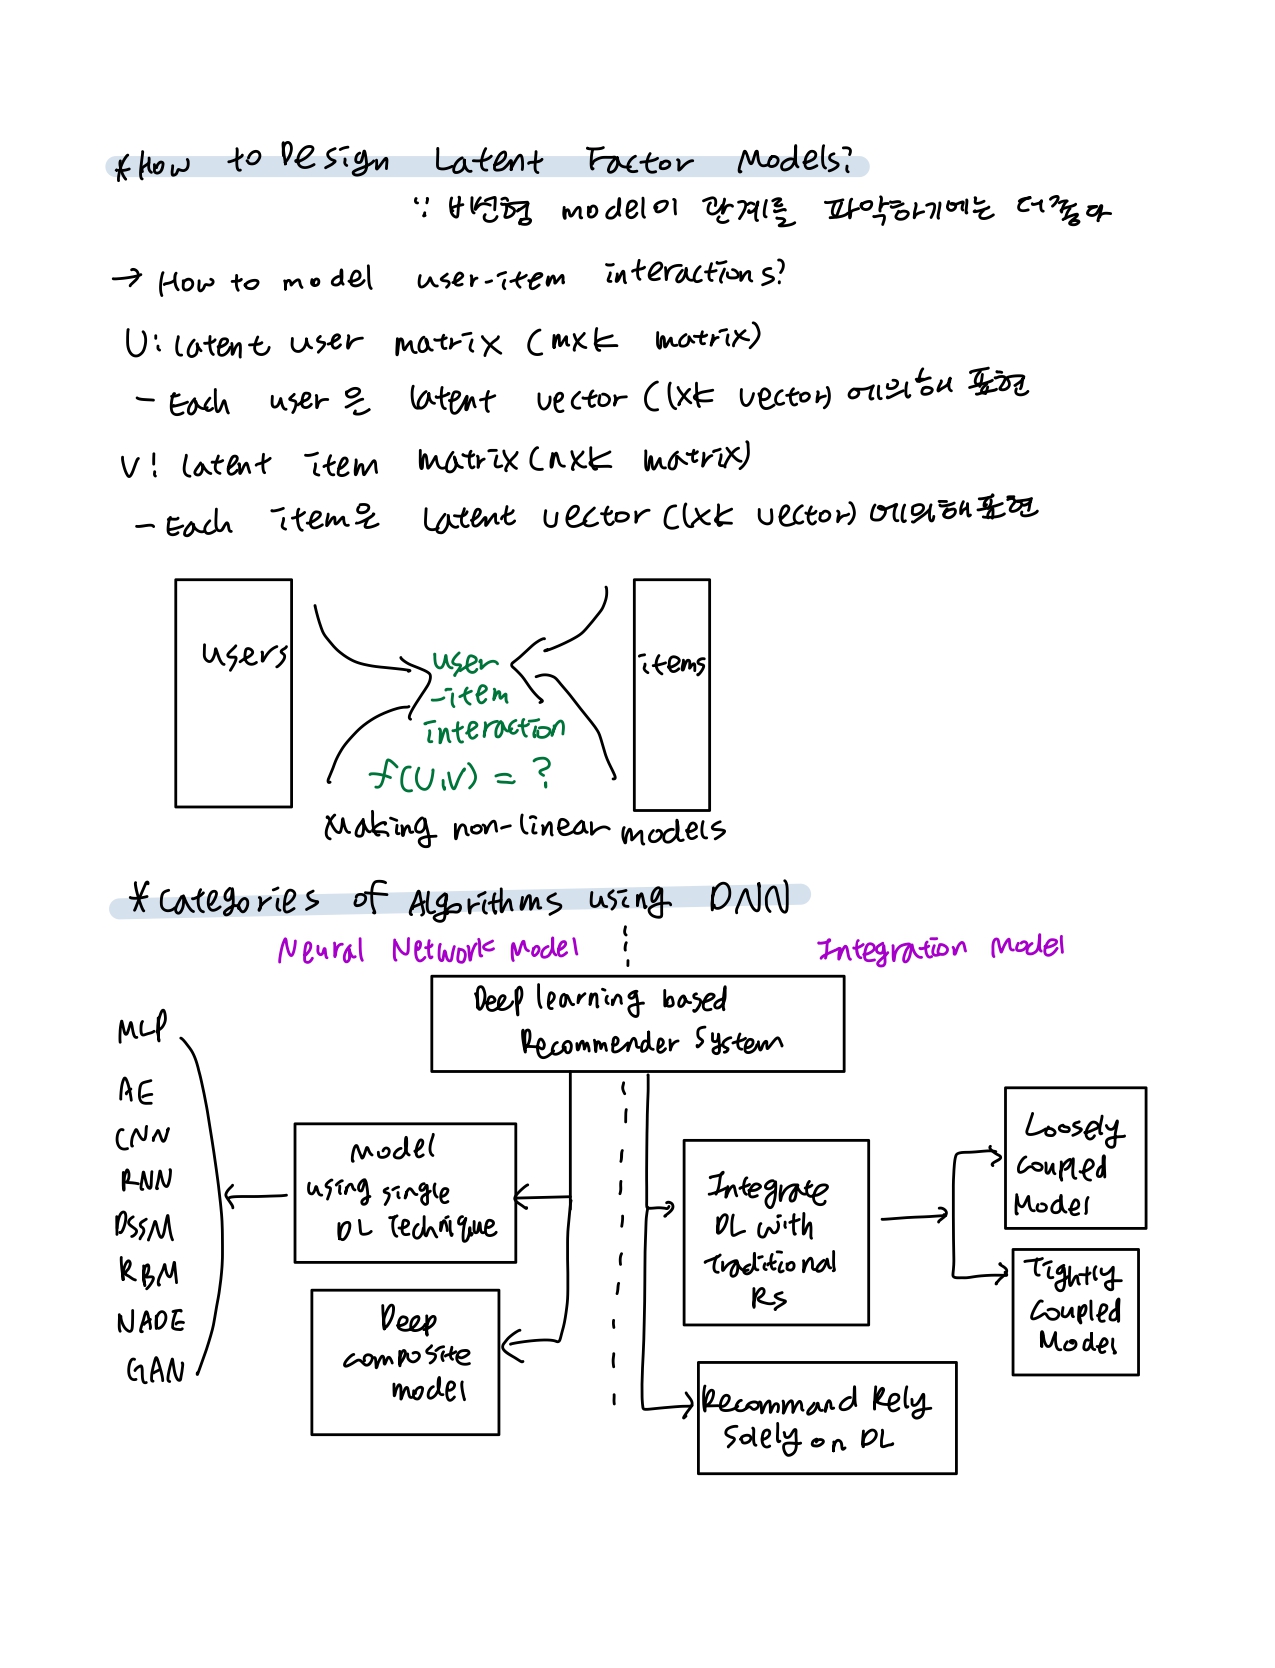 *How to Design Latent Factor Models?
∵ 비선형 model이 관계를 파악하기에는 더좋다
→ How to model user-item interactions?
U: latent user matrix (m×k matrix)
- Each user은 latent vector (1×k vector) 에의해 표현
V: latent item matrix (n×k matrix)
- Each item은 latent vector (1×k vector) 에의해 표현
users
items
user
-item
interaction
f(U,V) = ?
Making non-linear models
*Categories of Algorithms using DNN
Neural Network Model
Integration Model
Deep learning based
Recommender System
MLP
AE
CNN
RNN
DSSM
RBM
NADE
GAN
Model
using single
DL Technique
Deep
composite
model
Integrate
DL with
Traditional
RS
Loosely
Coupled
Model
Tightly
Coupled
Model
Recommand Rely
Solely on DL